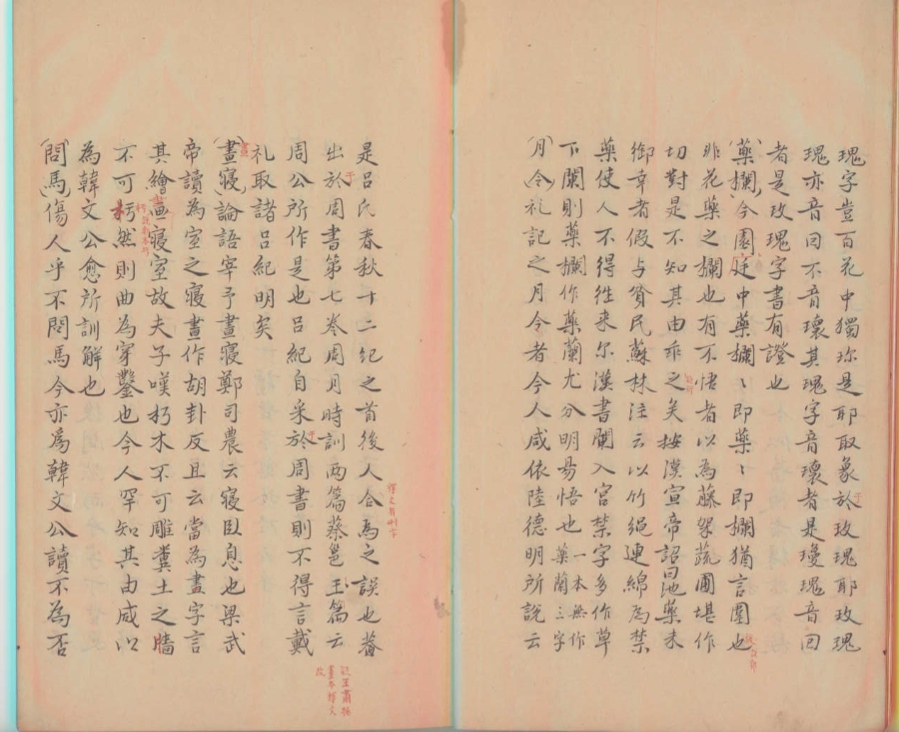 瑰字豈百花中獨珎是耶取象於玫瑰耶玫瑰
瑰亦音回不音瓌其瑰字音瓌者是瓊瑰音回
者是玫瑰字書有證也
藥欄今園廷中藥欄〻即藥〻即欄猶言圍也
非花藥之欄也有不悟者以為藤架蔬圃堪作
切對是不知其由乖之矣按漢宣帝詔曰池藥未
御幸者假与貧民蘇林注云以竹繩連綿為禁
藥使人不得往来尔漢書闌入宫禁字多作草
下闌則藥欄作藥蘭尤分明易悟也一本無作藥蘭三字
月令礼記之月令者今人咸依陸德明所說云
是呂氏春秋十二纪之首後人合為之誤也葢
出於周書第七卷周月時訓两篇蔡邕玉篇云
周公所作是也呂紀自采於周書則不得言戴
礼取諸呂紀明矣
晝寢論語宰予晝寢鄭司農云寢臥息也梁武
帝讀為室之寢晝作胡卦反且云當為畫字言
其繪畫寢室故夫子嘆朽木不可雕糞土之牆
不可朽然則曲為穿鑿也今人罕知其由咸以
為韓文公愈所訓解也
問馬傷人乎不問馬今亦為韓文公讀不為否